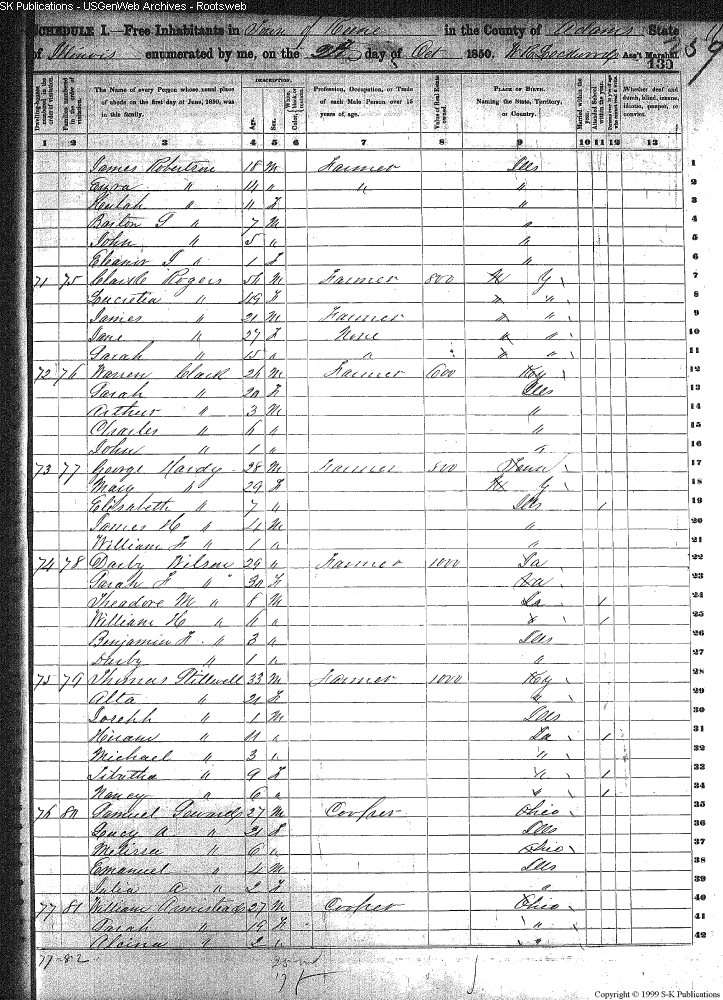 SK Publications - USGenWeb Archives - Rootsweb
SCHEDULE I.—Free Inhabitants in Town of Keene in the County of Adams State
of Illinois enumerated by me, on the 2d day of Oct 1850. Ass't Marshal.
139
Dwelling-houses numbered in the order of visitation. Families numbered in the order of visitation. The Name of every Person whose usual place of abode on the first day of June, 1850, was in this family. DESCRIPTION. Age. Sex. Profession, Occupation, or Trade of each Male Person over 15 years of age. Value of Real Estate owned. PLACE OF BIRTH. Naming the State, Territory, or Country. Married within the year. Attended School within the year. Whether deaf and dumb, blind, insane, idiotic, pauper, or convict.
1 2 3 4 5 6 7 8 9 10 11 12 13
James Robertson 18 M Farmer Ills 1
Ezra " 14 " " " 2
Beulah " 11 F " 3
Barton T " 7 M " 4
John " 5 " " 5
Eleanor T " 1 F " 6
71 75 Rogers 56 M Farmer 800 N Y 7
Lucretia " 49 F " " 8
James " 21 M Farmer " " 9
Jane " 27 F None " " 10
Sarah " 15 " " " " 11
72 76 Warren Clark 26 M Farmer 600 Ky 12
Sarah " 20 F Ills 13
Arthur " 3 M " 14
Charles " 6 " " 15
John " 1 " " 16
73 77 George Hardy 28 M Farmer 800 Tenn 17
Mary " 29 F N Y 18
Elizabeth " 7 " Ills 1 19
James H " 4 M " 20
William F " 1 " " 21
74 78 Darby Wilson 29 " Farmer 1000 22
Sarah F " 30 F 23
Theadore M " 8 M 1 24
William H " 6 " " 1 25
Benjamin F. " 3 " Ills 26
Darby " 1 " " 27
75 79 Thomas Stillwell 33 M Farmer 1000 Ky 28
Alta " 21 F " 29
Joseph " 1 M Ills 30
Hiram " 11 " 1 31
Michael " 3 " " 32
" 9 F " 1 33
Nancy " 6 " " 1 34
76 80 Samuel 27 M Cooper Ohio 35
A " 21 F Ills 36
Melissa " 6 " Ohio 37
Emanuel " 4 M Ills 38
Julia A " 2 F " 39
77 81 William Armistead 27 M Cooper Ohio 40
Sarah " 19 F " 41
Alcina " 2 " " 42
77-82
Copyright © 1999 S-K Publications